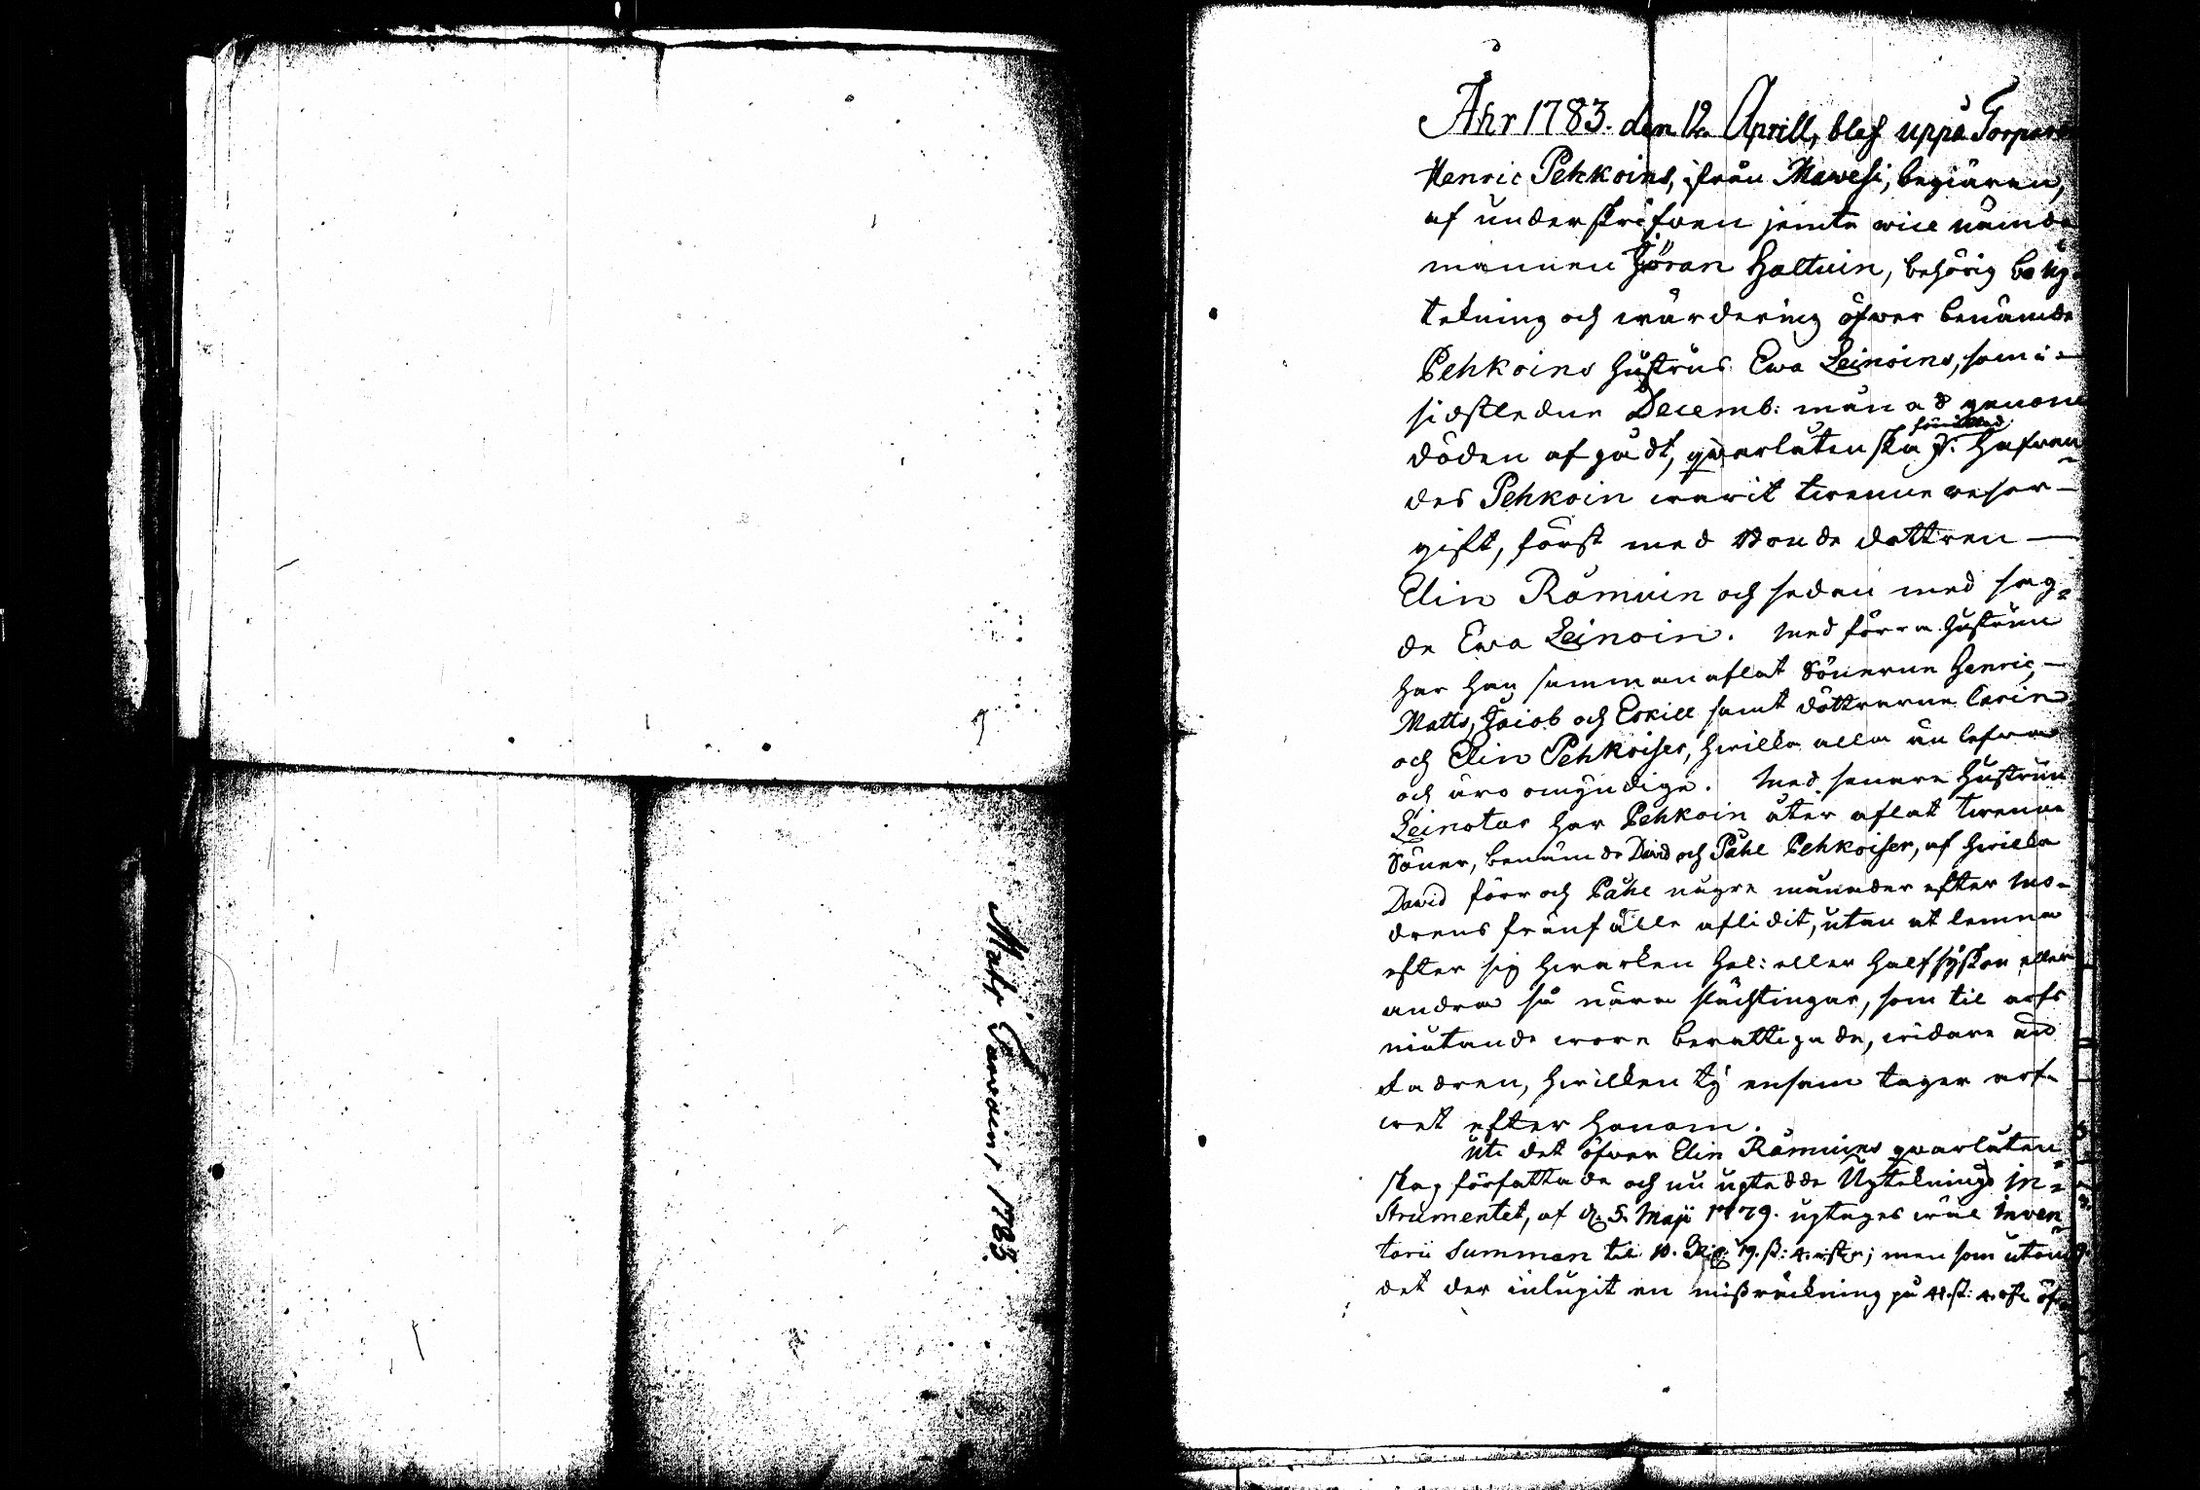 Matts Tarvoin 1783.
Åhr 1783. den 12 Aprill, blef uppå Torparen
Henric Pehkoins, ifrån Mawesi, begiäran,
af underskrifwen jemte wice nämde
mannen Jöran Haltuin, behörig Bo up-
tekning och wärdering öfwer benämde
Pehkoins hustrus Ewa Leinoins, som i
sidstledne Decemb: månad genom
döden afgådt, qwarlåtenskap förrättad.
Hafwandes Pehkoin warit twenne resor
gift, först med Bonde dottren
Elin Rämuin och sedan med sag-
de Ewa Leinoin. Med förra hustrun
har han sammanaflat Sönerne Henric,
Matts, Jacob och Eskill samt döttrarne Carin
och Elin Pehkoiser, hwilka alla än lefwa
och äro omyndige. Med senare hustrun
Leinotar har Pehkoin åter aflat twenne
Söner, benämde David och Påhl Pehkoiser, af hwilka
David förr och Påhl någre månader efter mo-
drens frånfälle aflidit, utan at lemna
efter sig hwarken Hel: eller Halfsyskon eller
andra så nära slächtingar, som til arfs
niutande wore berättigade, widare än
fadren, hwilken ty ensam tager arf-
wet efter honom.
Uti det öfwer Elin Rämuins qwarlåten
skap författade och nu uptedde Uptecknings in-
strumentet, af d. 5 Maji 1779. uptages wäl Inven
tarii Summan til 10. Rd. 19. ß: 4. rst; men som utom
det der inlupit en missräckning på 41. ß: 4. rst öf